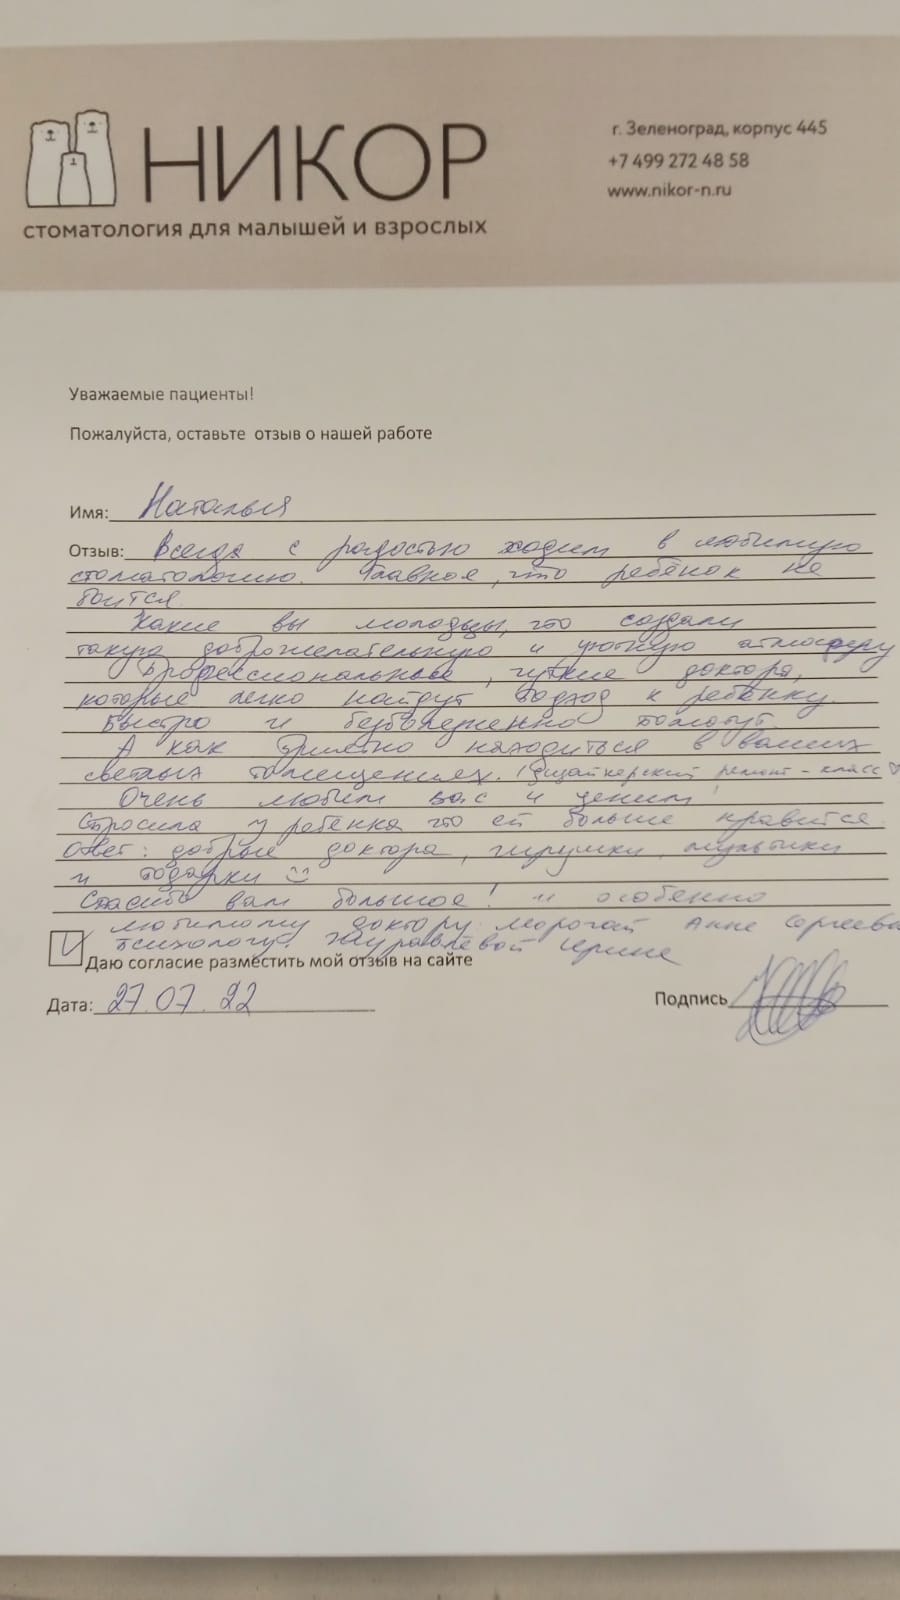 НИКОР
стоматология для малышей и взрослых
г. Зеленоград, корпус 445
+7 499 272 48 58
www.nikor-n.ru
Уважаемые пациенты!
Пожалуйста, оставьте отзыв о нашей работе
Имя: Наталья
Отзыв: Всегда с радостью ходим в любимую
стоматологию. Главное, что ребёнок не
боится.
Какие вы молодцы, что создали
такую доброжелательную и уютную атмосферу
Профессиональные, чуткие доктора,
которые легко найдут подход к ребёнку.
Быстро и безболезненно помогут.
А как приятно находиться в ваших
светлых помещениях. (Дизайнерский ремонт - класс ♡
Очень любим вас и ценим!
Спросила у ребёнка что ей больше нравится.
Ответ: добрые доктора, игрушки, мультики
и подарки
Спасибо вам большое! и особенно
любимому доктору Анне Сергеевне
психологу Журавлёвой Ирине
Даю согласие разместить мой отзыв на сайте
Дата: 27.07.22
Подпись